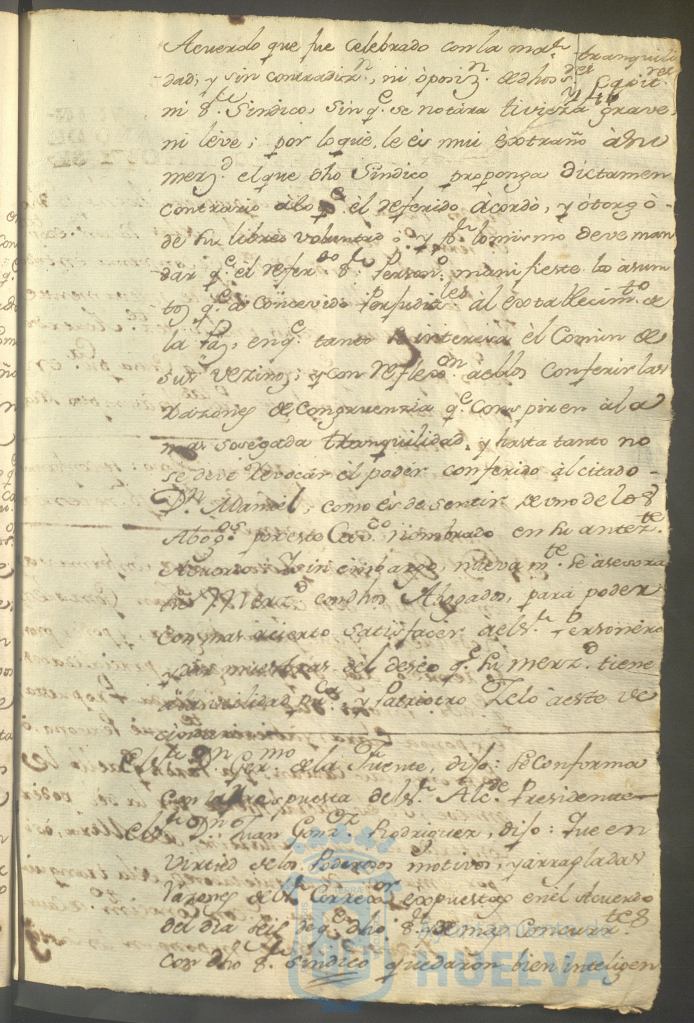 Acuerdo que fue celebrado con la mor. tranquili
dad, y sin contradiz.n, ni òposiz.n de dhos
ni S.r Sindico, sin q.e se notàra tiviéza grave,
ni leve; por lo què, le és mui èxtraño à su
merz.d el que dho Sindico proponga dictamen
contrario àlo q.e el referido àcordò, y òtorgò
de su libre voluntad y p.r lo mismo deve man
dar q.e el refer.do S.r Person.o manifieste los àsun
tos q.e à concevido Perjudiz.les àl èxtablecim.to de
la en q.e tanto interesa èl Comun de
sus vezinos; y con reflex.on àellos conferir las
Razones de Congruenzia q.e Conspiren àla
mas sosegada tranquilidad, y hasta tanto no
se deve Revocar el poder conferido àl citado
D.n Manuel, como és de sentir de uno de los
Abog.os por esto Cav.do nombrado en su antez.te
sin embargo, nueva m.te se asesora
Merz.d con dhos Abogados, para poder
con mas acierto satisfacer àel S.r Personero
y dar muestras del deséo q.e su merz.d tiene
y Patriotico Zelo àeste ve
cindario
El S.r D.n Ger.mo de la Fuente, dijo: Se Conforma
con la Respuesta del S.r Alc.de Presidente
El S.r D.n Juan Gonz.z Rodriguez, dijo: Que en
virtud de los Poderosos motivos, y arregladas
Razones de S.r Correx.or expuestas en el Acuerdo
del dia seis do q.e dho S.r y demas Concurr.tes
con dho S.r Sindico quedaron bien inteligen
Ayuntamiento de
HUELVA